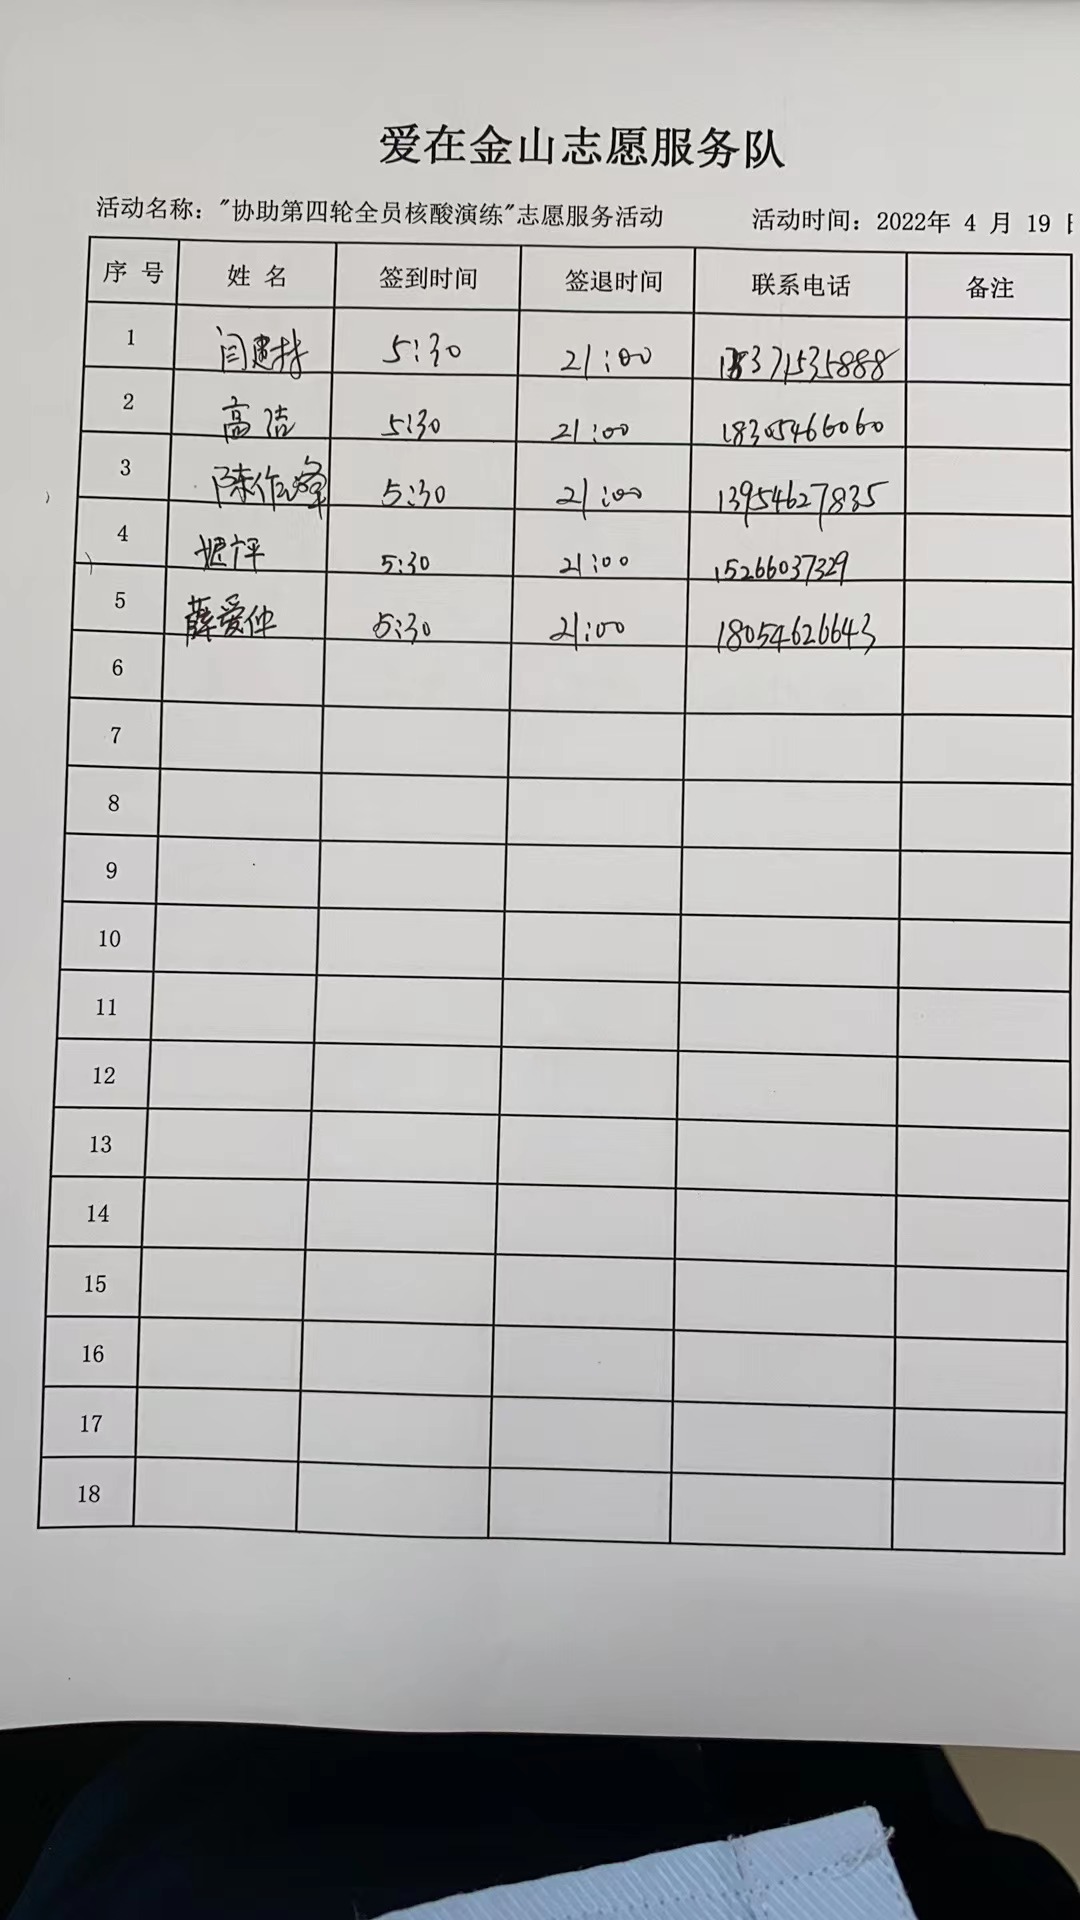 爱在金山志愿服务队
活动名称："协助第四轮全员核酸演练"志愿服务活动 活动时间：2022年 4 月 19 日
序 号 姓 名 签到时间 签退时间 联系电话 备注
1 闫 5:30 21:00 371535888
2 高洁 5:30 21:00 18305466060
3 陈作峰 5:30 21:00 13954627835
4 5:30 21:00 15266037329
5 薛爱仲 5:30 21:00 18054626643
6
7
8
9
10
11
12
13
14
15
16
17
18